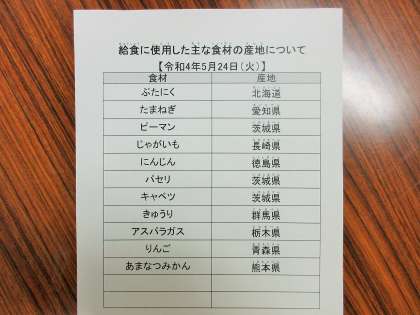 給食に使用した主な食材の産地について
【令和4年5月24日(火)】
食材 産地
ぶたにく 北海道
たまねぎ 愛知県
ピーマン 茨城県
じゃがいも 長崎県
にんじん 徳島県
パセリ 茨城県
キャベツ 茨城県
きゅうり 群馬県
アスパラガス 栃木県
りんご 青森県
あまなつみかん 熊本県